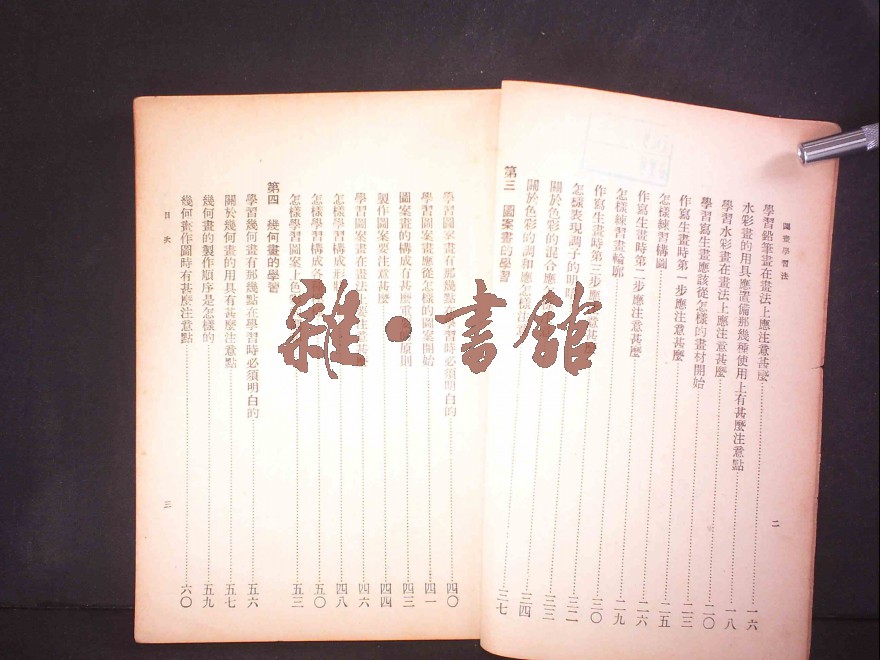 圖畫學習法
學習鉛筆畫在畫法上應注意甚麼 一六
水彩畫的用具應置備那幾種使用上有甚麼注意點
學習水彩畫在畫法上應注意甚麼 一八
學習寫生畫應該從怎樣的畫材開始 二〇
作寫生畫時第一步應注意甚麼 二三
怎樣練習構圖 二五
作寫生畫時第二步應注意甚麼 二六
怎樣練習畫輪廓 二九
作寫生畫時第三步應注意甚 三〇
怎樣表現調子的明 三二
關於色彩的混合應 三三
關於色彩的調和應怎樣注 三四
第三 圖案畫的學習 三七
二
學習圖案畫有那幾點 學習時必須明白的 四〇
學習圖案畫應從怎樣的圖案開始 四一
圖案畫的構成有甚麼重 原則 四三
製作圖案要注意甚麼 四四
學習圖案畫在畫法上要注意甚 四六
怎樣學習構成形 四八
怎樣學習構成各種 五〇
怎樣學習圖案上色 五三
第四 幾何畫的學習
學習幾何畫有那幾點在學習時必須明白的 五六
關於幾何畫的用具有甚麼注意點 五七
幾何畫的製作順序是怎樣的 五九
幾何畫作圖時有甚麼注意點 六〇
目次
三
雜·書館